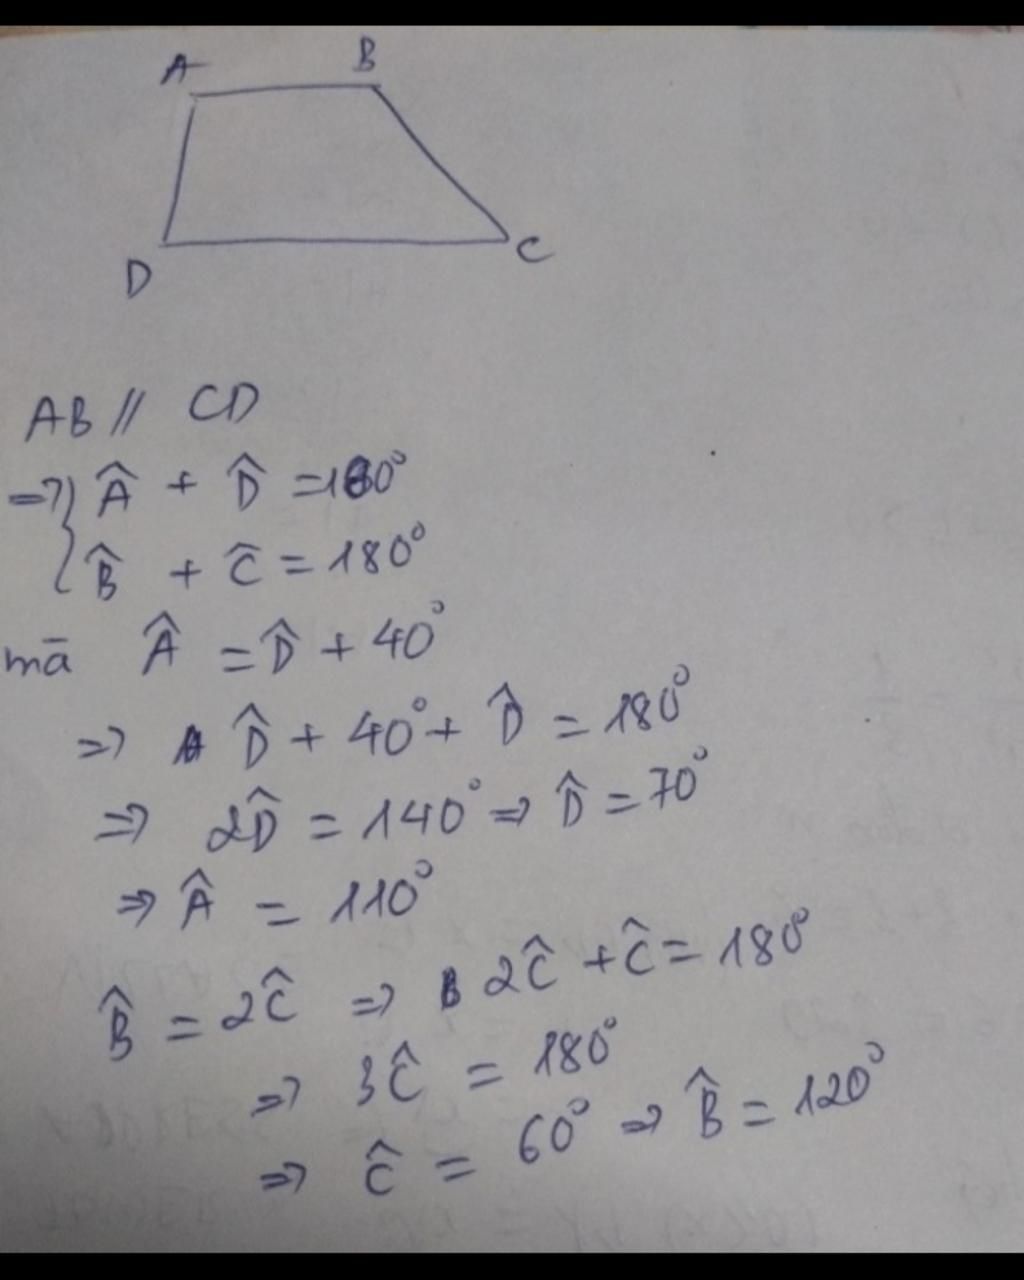 A B
D C
AB // CD
=> { Â + D̂ = 180°
B̂ + Ĉ = 180°
mā Â = D̂ + 40°
=> D̂ + 40° + D̂ = 180°
=> 2D̂ = 140° => D̂ = 70°
=> Â = 110°
B̂ = 2Ĉ => 2Ĉ + Ĉ = 180°
=> 3Ĉ = 180°
=> Ĉ = 60° => B̂ = 120°